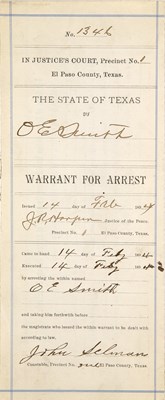 No. 1346
IN JUSTICE'S COURT, Precinct No. 1
El Paso County, Texas.
THE STATE OF TEXAS
TO
O E Smith
WARRANT FOR ARREST
Issued 14 day of Feb 189
Justice of the Peace
Precinct No. 1 El Paso County, Texas.
Came to hand 14 day of Feby 189
Executed 14 day of Feby 189
by arresting the within named
O E Smith
and taking him forthwith before
the magistrate who issued the within warrant to be dealt with
according to law.
John Selman
Constable, Precinct No. one El Paso County, Texas